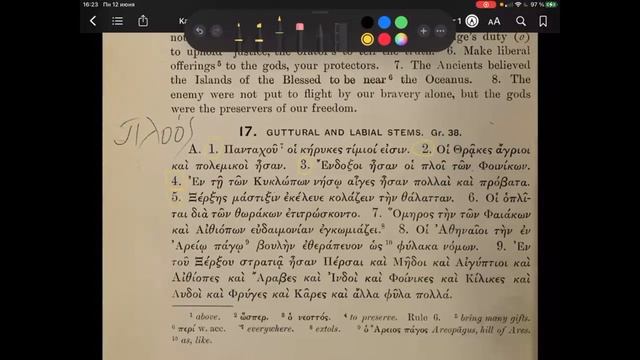 16:23 Пн 12 июня
97 %
to uphold justice, the orator's to tell the truth. 6. Make liberal
offerings⁵ to the gods, your protectors. 7. The Ancients believed
the Islands of the Blessed to be near⁶ the Oceanus. 8. The
enemy were not put to flight by our bravery alone, but the gods
were the preservers of our freedom.
17. GUTTURAL AND LABIAL STEMS. Gr. 38.
A. 1. Πανταχοῦ⁷ οἱ κήρυκες τίμιοί εἰσιν. 2. Οἱ Θρᾷκες ἄγριοι
καὶ πολεμικοὶ ἦσαν. 3. Ἔνδοξοι ἦσαν οἱ πλοῖ τῶν Φοινίκων.
4. Ἐν τῇ τῶν Κυκλώπων νήσῳ αἶγες ἦσαν πολλαὶ καὶ πρόβατα.
5. Ξέρξης μάστιξιν ἐκέλευε κολάζειν τὴν θάλατταν. 6. Οἱ ὁπλῖ-
ται διὰ τῶν θωράκων ἐτιτρώσκοντο. 7. Ὅμηρος τὴν τῶν Φαιάκων
καὶ Αἰθιόπων εὐδαιμονίαν ἐγκωμιάζει.⁸ 8. Οἱ Ἀθηναῖοι τὴν ἐν
Ἀρείῳ πάγῳ⁹ βουλὴν ἐθεράπευον ὡς¹⁰ φύλακα νόμων. 9. Ἐν
τοῦ Ξέρξου στρατιᾷ ἦσαν Πέρσαι καὶ Μῆδοι καὶ Αἰγύπτιοι καὶ
Αἰθίοπες καὶ Ἄραβες καὶ Ἰνδοὶ καὶ Φοίνικες καὶ Κίλικες καὶ
Λυδοὶ καὶ Φρύγες καὶ Κᾶρες καὶ ἄλλα φῦλα πολλά.
¹ above. ² ὥσπερ. ³ ὁ νεοττός. ⁴ to preserve. Rule 6. ⁵ bring many gifts.
⁶ περί w. acc. ⁷ everywhere. ⁸ extols. ⁹ ὁ Ἄρειος πάγος Areopagus, hill of Ares.
¹⁰ as, like.